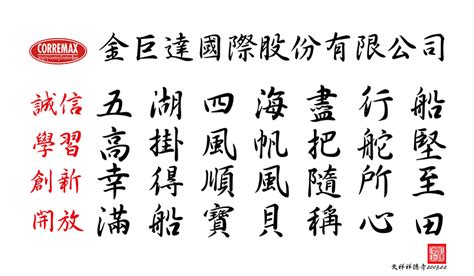 CORREMAX
金巨達國際股份有限公司
誠信 五湖四海盡行船
學習 高掛風帆把舵堅
創新 幸得順風隨所至
開放 滿船寶貝稱心田